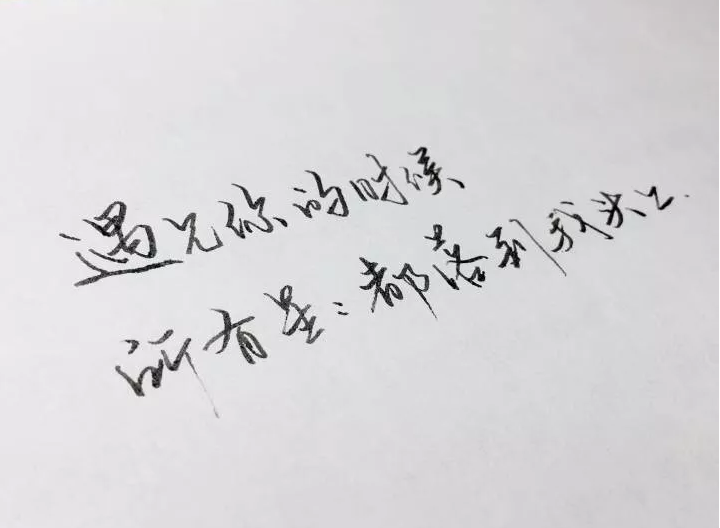 遇见你的时候
所有星星都落到我头上.